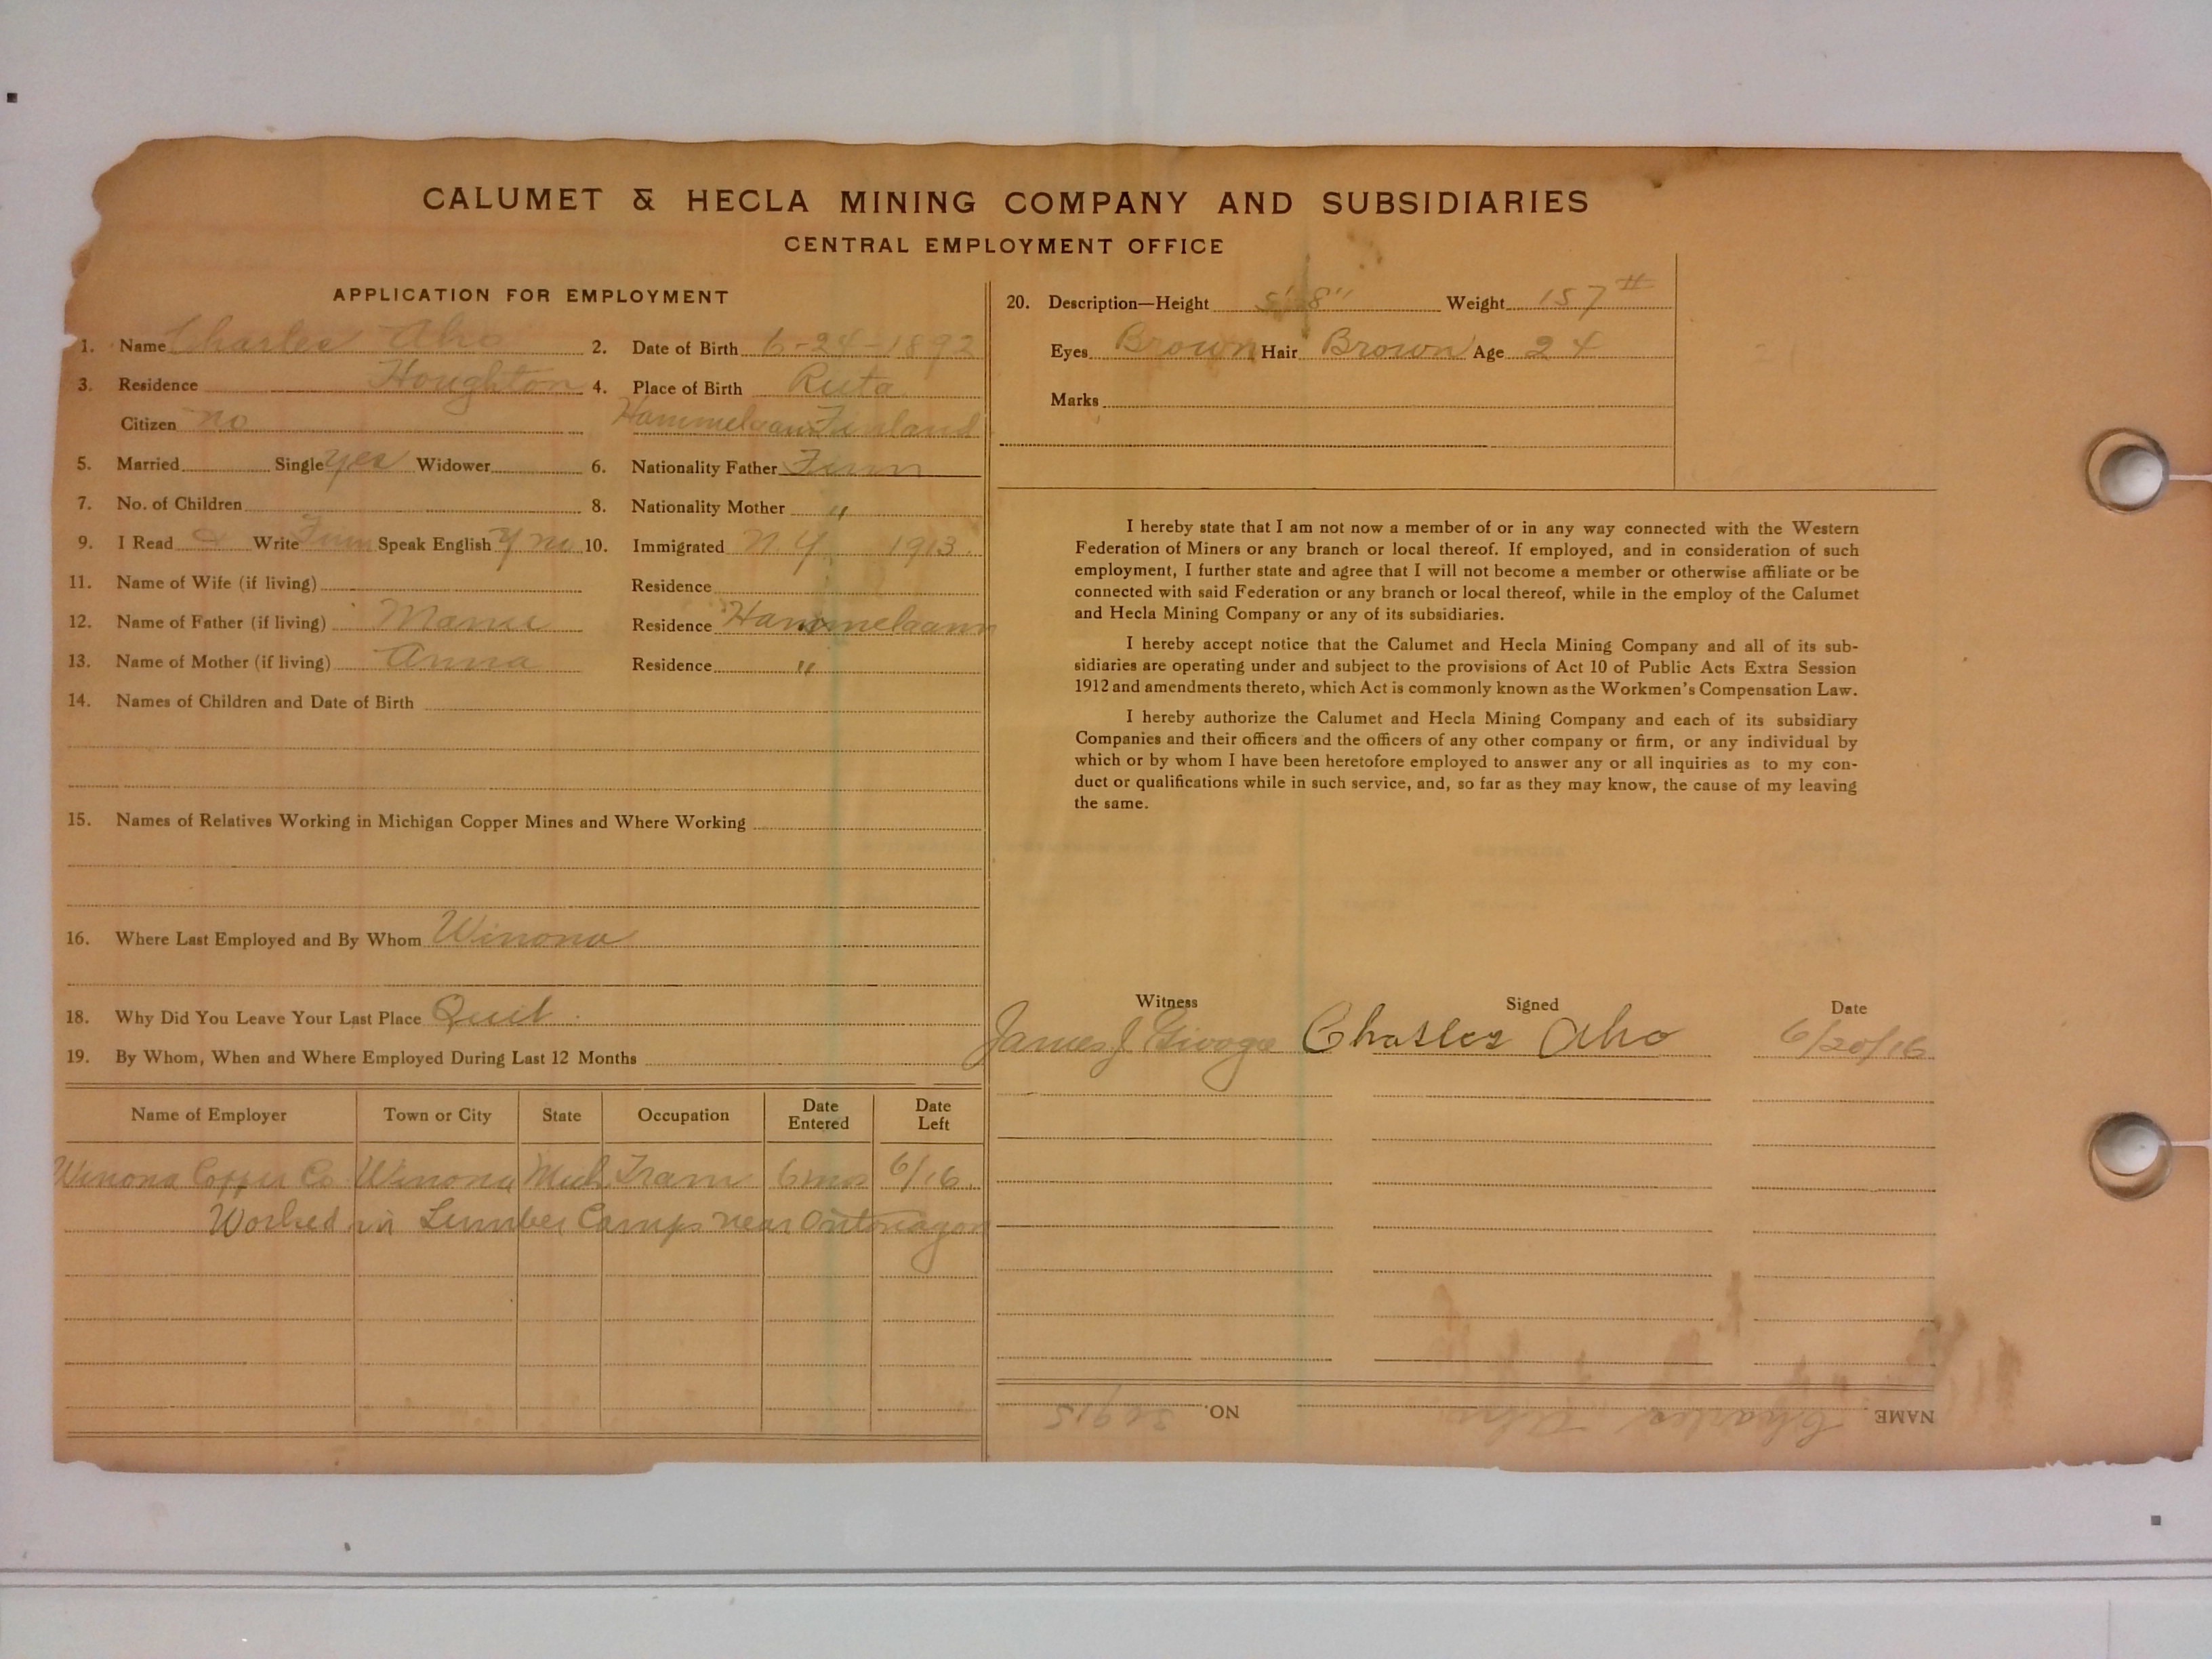 CALUMET & HECLA MINING COMPANY AND SUBSIDIARIES
CENTRAL EMPLOYMENT OFFICE
APPLICATION FOR EMPLOYMENT
1. Name Charles Aho 2. Date of Birth 6-24-1892
3. Residence Houghton 4. Place of Birth Ruta
Citizen no Hammelaann Finland
5. Married Single yes Widower 6. Nationality Father Finn
7. No. of Children 8. Nationality Mother "
9. I Read Write Finn Speak English no 10. Immigrated N.Y. 1913
11. Name of Wife (if living) Residence
12. Name of Father (if living) Residence Hammelaann
13. Name of Mother (if living) Anna Residence "
14. Names of Children and Date of Birth
15. Names of Relatives Working in Michigan Copper Mines and Where Working
16. Where Last Employed and By Whom Winona
18. Why Did You Leave Your Last Place Quit
19. By Whom, When and Where Employed During Last 12 Months
Name of Employer Town or City State Occupation Date Entered Date Left
Winona Copper Co Winona Mich Tram 6 mos 6/16
Worked in Lumber Camps near Ontonagon
20. Description—Height 5' 8" Weight 157 #
Eyes Brown Hair Brown Age 24
Marks
I hereby state that I am not now a member of or in any way connected with the Western
Federation of Miners or any branch or local thereof. If employed, and in consideration of such
employment, I further state and agree that I will not become a member or otherwise affiliate or be
connected with said Federation or any branch or local thereof, while in the employ of the Calumet
and Hecla Mining Company or any of its subsidiaries.
I hereby accept notice that the Calumet and Hecla Mining Company and all of its sub-
sidiaries are operating under and subject to the provisions of Act 10 of Public Acts Extra Session
1912 and amendments thereto, which Act is commonly known as the Workmen's Compensation Law.
I hereby authorize the Calumet and Hecla Mining Company and each of its subsidiary
Companies and their officers and the officers of any other company or firm, or any individual by
which or by whom I have been heretofore employed to answer any or all inquiries as to my con-
duct or qualifications while in such service, and, so far as they may know, the cause of my leaving
the same.
Witness Signed Date
James J. Charles Aho 6/20/16
NAME Charles Aho NO. 30915